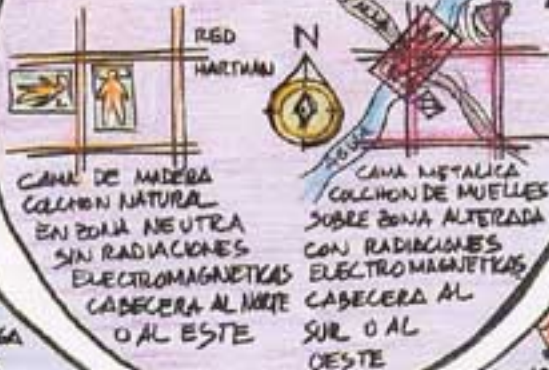 RED
HARTMAN
N
AGUA
AGUA
CAMA DE MADERA
COLCHON NATURAL
EN ZONA NEUTRA
SIN RADIACIONES
ELECTROMAGNETICAS
CABECERA AL NORTE
O AL ESTE
CAMA METALICA
COLCHON DE MUELLES
SOBRE ZONA ALTERADA
CON RADIACIONES
ELECTROMAGNETICAS
CABECERA AL
SUR O AL
OESTE